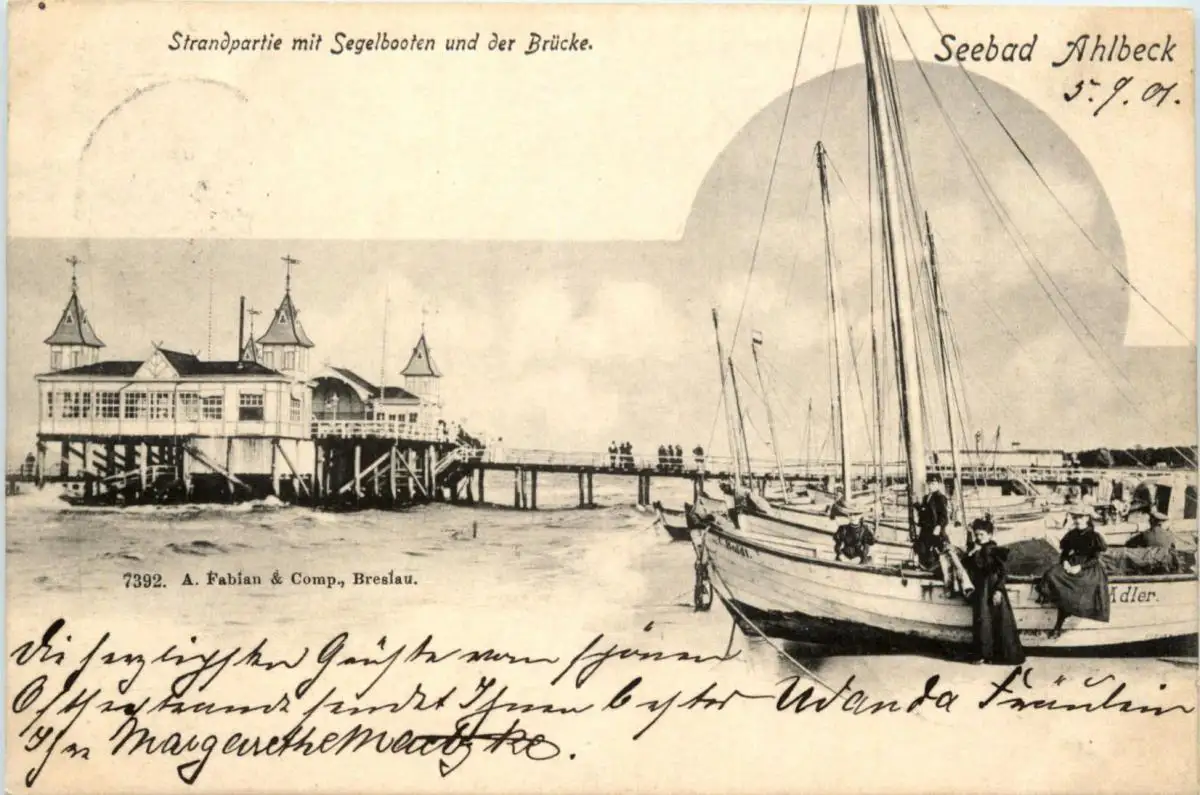 Strandpartie mit Segelbooten und der Brücke.
Seebad Ahlbeck
5.9.01.
7392. A. Fabian & Comp., Breslau.
Boldt.
Adler.
Die herzlichsten Grüße vom schönen
Ostseestrande sendet Ihnen bester Wanda Fräulein
Ihre Margarethe